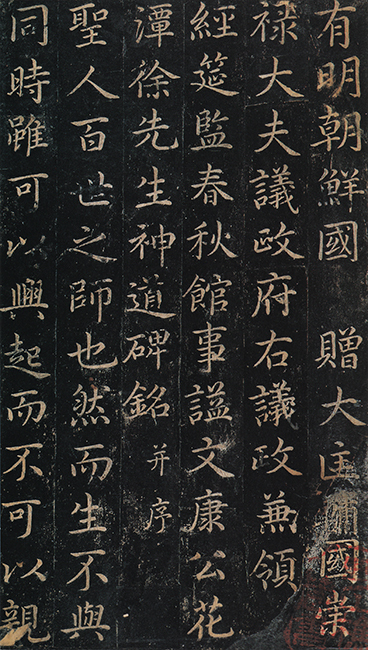 有明朝鮮國 贈大匡輔國崇
祿大夫議政府右議政兼領
經筵監春秋館事諡文康公花
潭徐先生神道碑銘 并序
聖人百世之師也然而生不與
同時雖可以興起而不可以親